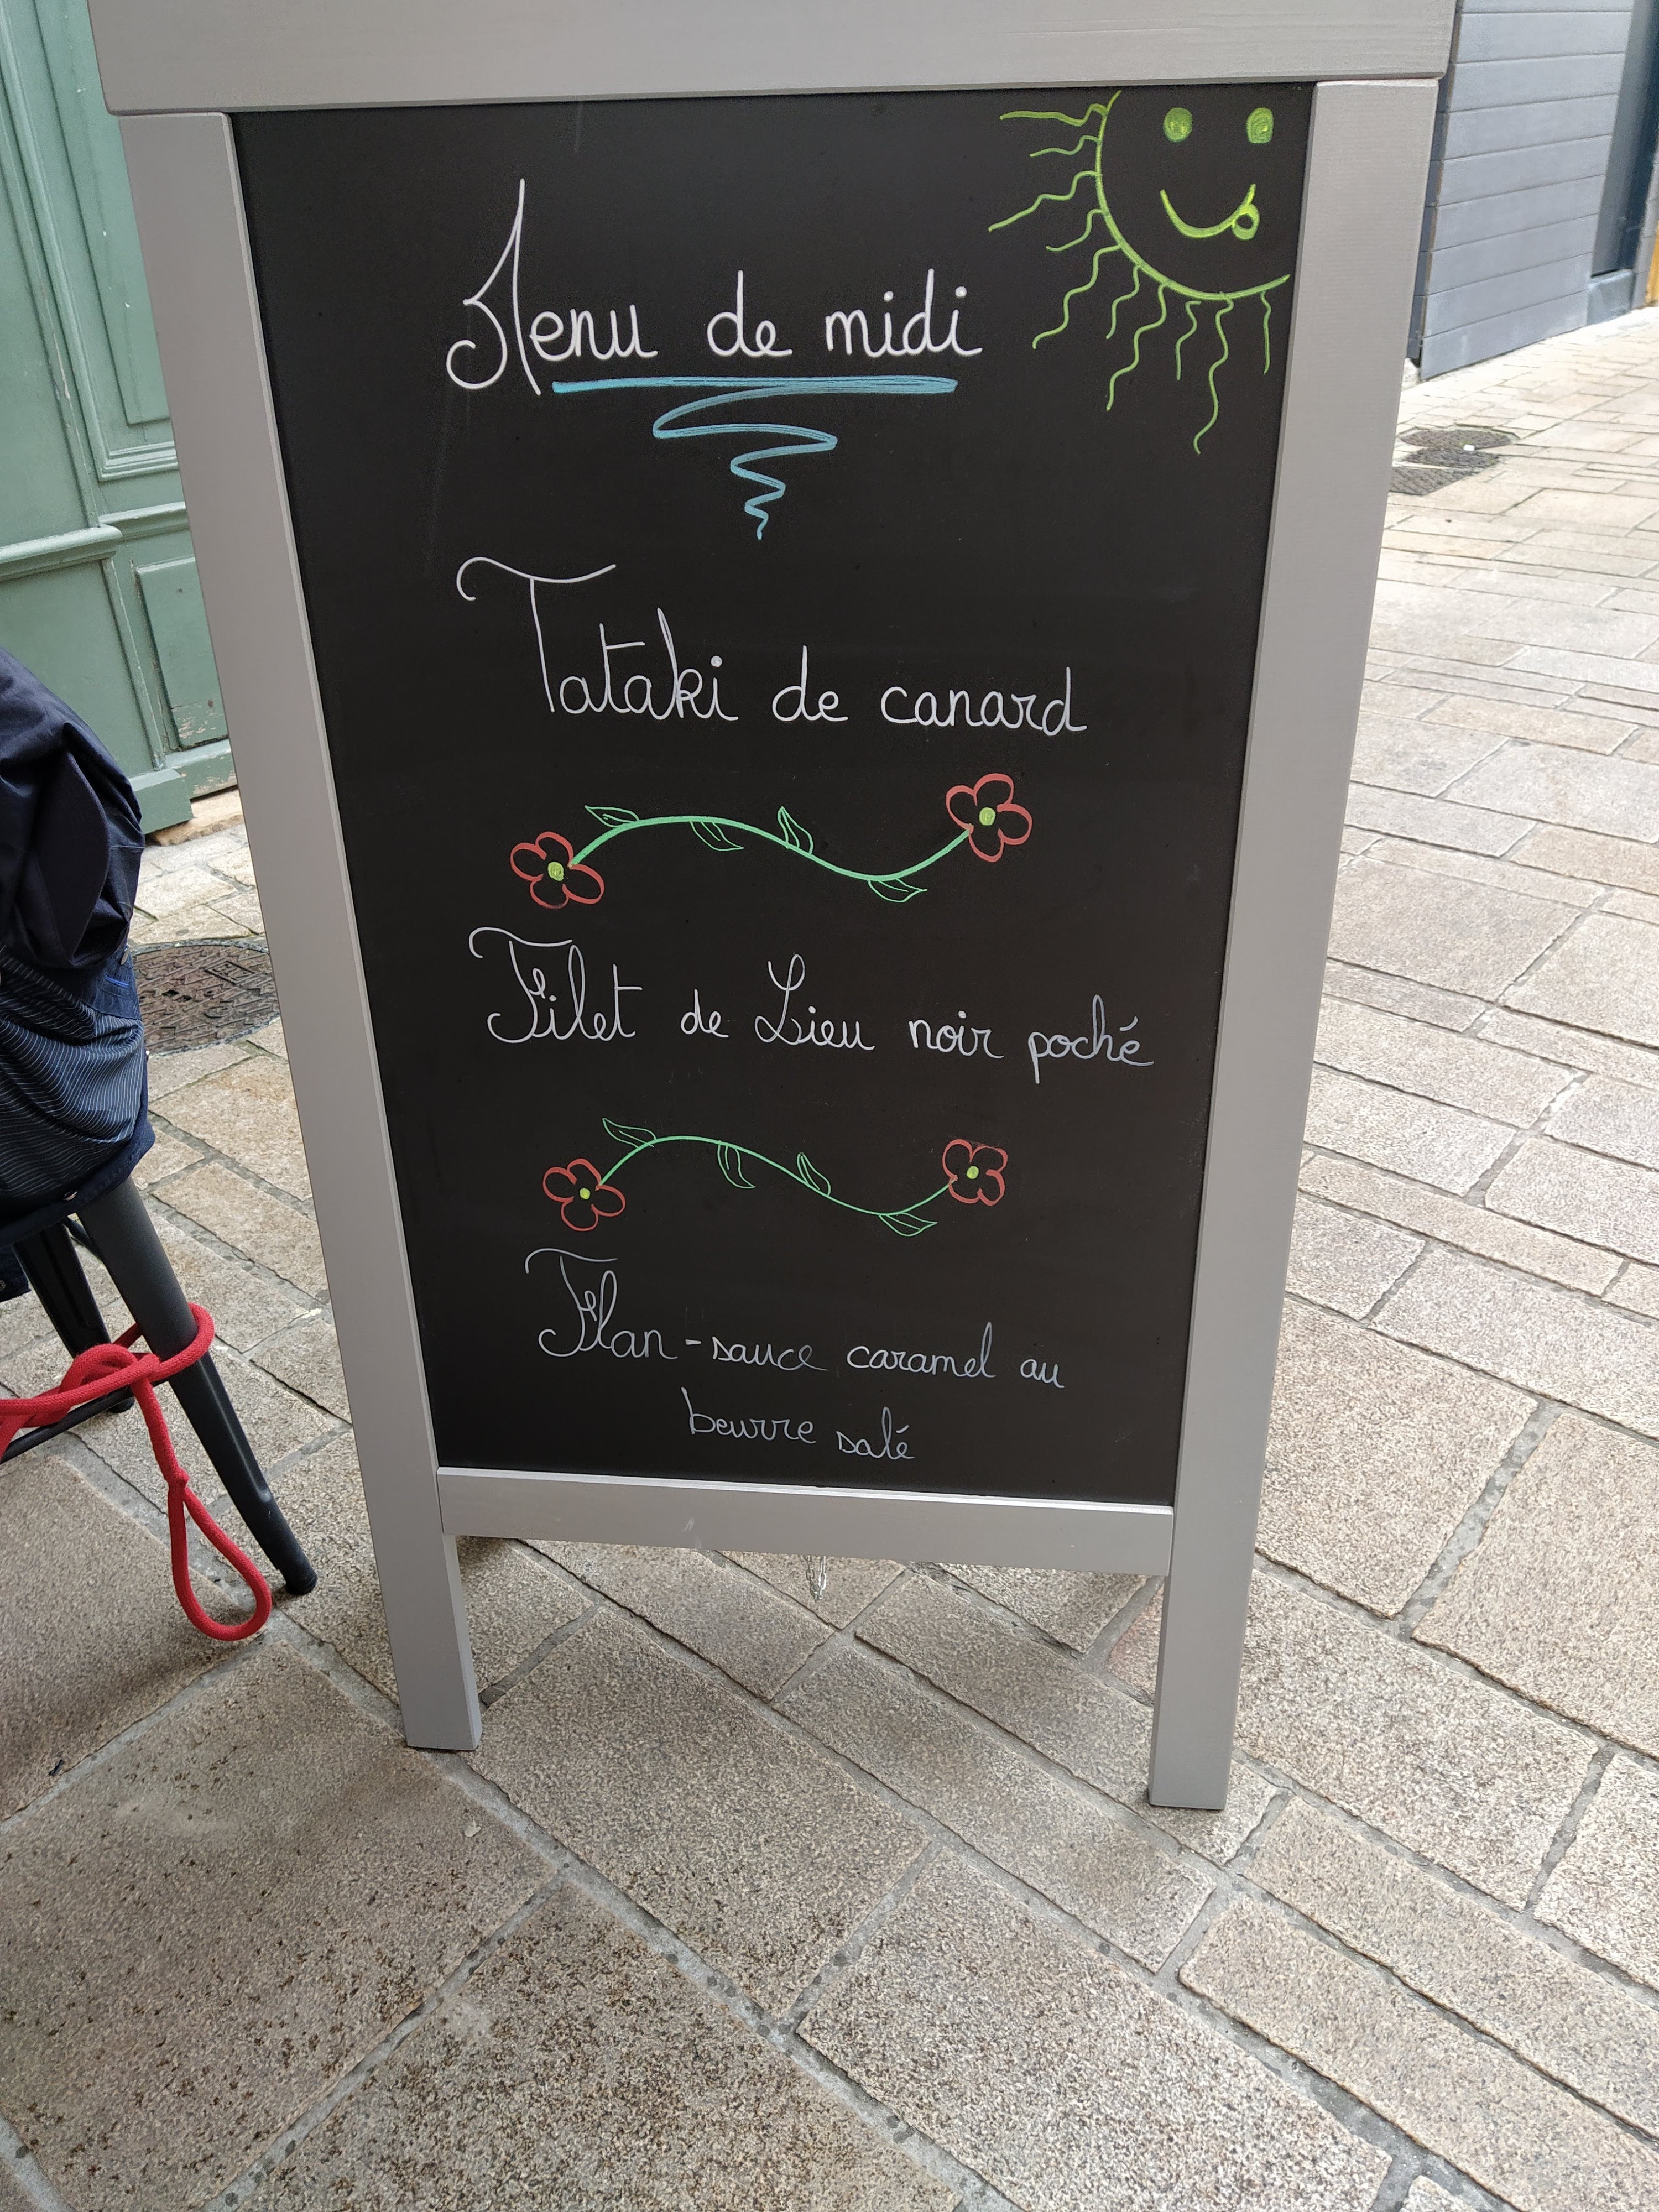 Menu de midi
Tataki de canard
Filet de Lieu noir poché
Flan - sauce caramel au
beurre salé